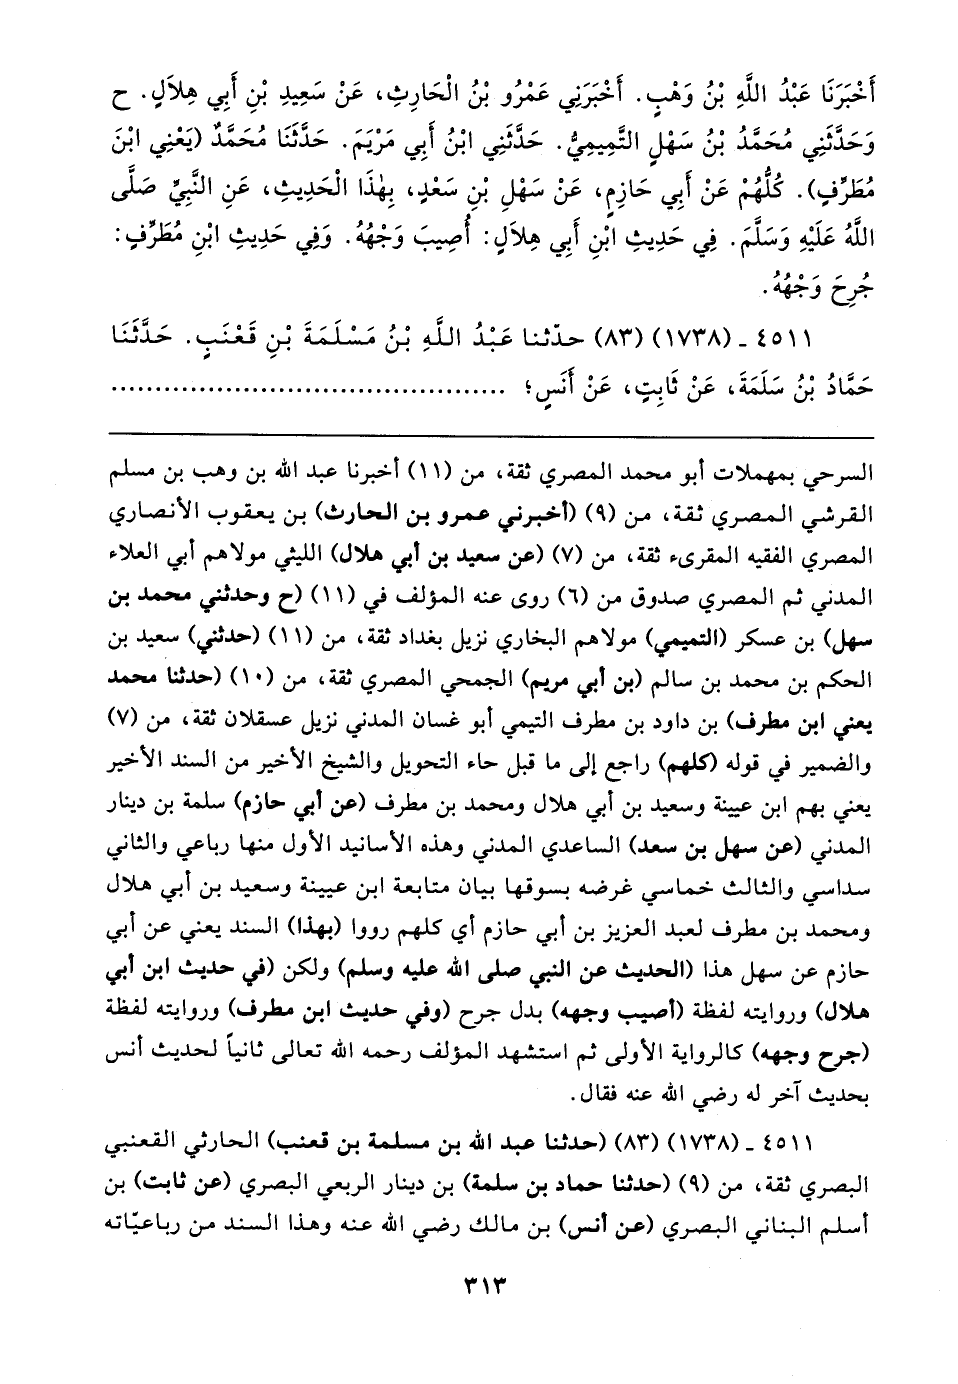 أَخْبَرَنَا عَبْدُ اللَّهِ بْنُ وَهْبٍ. أَخْبَرَنِي عَمْرُو بْنُ الْحَارِثِ، عَنْ سَعِيدِ بْنِ أَبِي هِلَالٍ. ح
وَحَدَّثَنِي مُحَمَّدُ بْنُ سَهْلٍ التَّمِيمِيُّ. حَدَّثَنِي ابْنُ أَبِي مَرْيَمَ. حَدَّثَنَا مُحَمَّدٌ (يَعْنِي ابْنَ
مُطَرِّفٍ). كُلُّهُمْ عَنْ أَبِي حَازِمٍ، عَنْ سَهْلِ بْنِ سَعْدٍ، بِهٰذَا الْحَدِيثِ، عَنِ النَّبِيِّ صَلَّى
اللَّهُ عَلَيْهِ وَسَلَّمَ. فِي حَدِيثِ ابْنِ أَبِي هِلَالٍ: أُصِيبَ وَجْهُهُ. وَفِي حَدِيثِ ابْنِ مُطَرِّفٍ:
جُرِحَ وَجْهُهُ.
٤٥١١ ـ (١٧٣٨) (٨٣) حدّثنا عَبْدُ اللَّهِ بْنُ مَسْلَمَةَ بْنِ قَعْنَبٍ. حَدَّثَنَا
حَمَّادُ بْنُ سَلَمَةَ، عَنْ ثَابِتٍ، عَنْ أَنَسٍ؛ .............................................
السرحي بمهملات أبو محمد المصري ثقة، من (١١) أخبرنا عبد الله بن وهب بن مسلم
القرشي المصري ثقة، من (٩) (أخبرني عمرو بن الحارث) بن يعقوب الأنصاري
المصري الفقيه المقرىء ثقة، من (٧) (عن سعيد بن أبي هلال) الليثي مولاهم أبي العلاء
المدني ثم المصري صدوق من (٦) روى عنه المؤلف في (١١) (ح وحدثني محمد بن
سهل) بن عسكر (التميمي) مولاهم البخاري نزيل بغداد ثقة، من (١١) (حدثني) سعيد بن
الحكم بن محمد بن سالم (بن أبي مريم) الجمحي المصري ثقة، من (١٠) (حدثنا محمد
يعني ابن مطرف) بن داود بن مطرف التيمي أبو غسان المدني نزيل عسقلان ثقة، من (٧)
والضمير في قوله (كلهم) راجع إلى ما قبل حاء التحويل والشيخ الأخير من السند الأخير
يعني بهم ابن عيينة وسعيد بن أبي هلال ومحمد بن مطرف (عن أبي حازم) سلمة بن دينار
المدني (عن سهل بن سعد) الساعدي المدني وهذه الأسانيد الأول منها رباعي والثاني
سداسي والثالث خماسي غرضه بسوقها بيان متابعة ابن عيينة وسعيد بن أبي هلال
ومحمد بن مطرف لعبد العزيز بن أبي حازم أي كلهم رووا (بهذا) السند يعني عن أبي
حازم عن سهل هذا (الحديث عن النبي صلى الله عليه وسلم) ولكن (في حديث ابن أبي
هلال) وروايته لفظة (أصيب وجهه) بدل جرح (وفي حديث ابن مطرف) وروايته لفظة
(جرح وجهه) كالرواية الأولى ثم استشهد المؤلف رحمه الله تعالى ثانياً لحديث أنس
بحديث آخر له رضي الله عنه فقال.
٤٥١١ ـ (١٧٣٨) (٨٣) (حدثنا عبد الله بن مسلمة بن قعنب) الحارثي القعنبي
البصري ثقة، من (٩) (حدثنا حماد بن سلمة) بن دينار الربعي البصري (عن ثابت) بن
أسلم البناني البصري (عن أنس) بن مالك رضي الله عنه وهذا السند من رباعيّاته
٣١٣